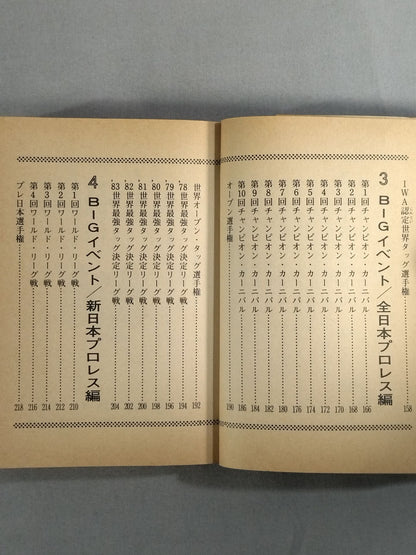 IWA認定世界タッグ選手権……158
3 BIGイベント/全日本プロレス編
第1回チャンピオン・カーニバル……166
第2回チャンピオン・カーニバル……168
第3回チャンピオン・カーニバル……170
第4回チャンピオン・カーニバル……172
第5回チャンピオン・カーニバル……174
第6回チャンピオン・カーニバル……176
第7回チャンピオン・カーニバル……180
第8回チャンピオン・カーニバル……182
第9回チャンピオン・カーニバル……184
第10回チャンピオン・カーニバル……186
オープン選手権……190
世界オープン・タッグ選手権……192
'78世界最強タッグ決定リーグ戦……194
'79世界最強タッグ決定リーグ戦……196
'80世界最強タッグ決定リーグ戦……198
'81世界最強タッグ決定リーグ戦……200
'82世界最強タッグ決定リーグ戦……202
'83世界最強タッグ決定リーグ戦……204
4 BIGイベント/新日本プロレス編
第1回ワールド・リーグ戦……210
第2回ワールド・リーグ戦……212
第3回ワールド・リーグ戦……214
第4回ワールド・リーグ戦……216
プレ日本選手権……218